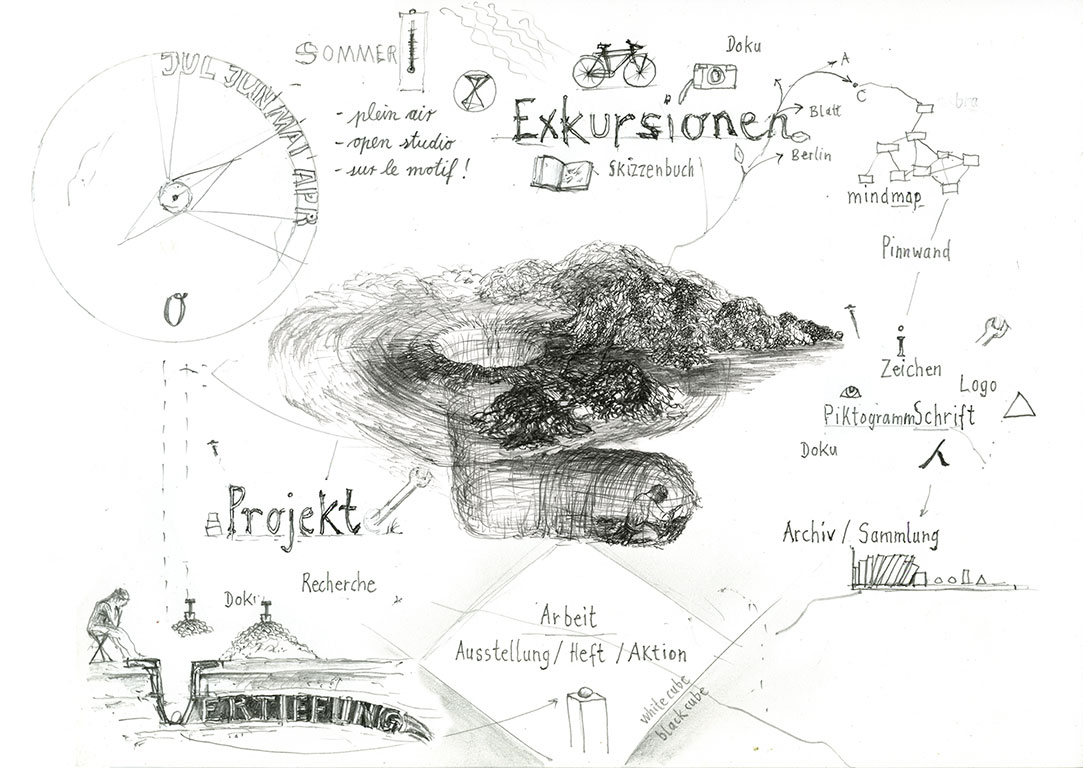 SOMMER
JUL JUN MAI APR
- plein air
- open studio
- sur le motif !
Doku
Exkursionen
Skizzenbuch
A
C
Blatt
Berlin
mindmap
Pinnwand
i
Zeichen
Logo
Piktogramm Schrift
Doku
Archiv / Sammlung
O
Projekt
Recherche
Doku
VERTIEFUNG
Arbeit
Ausstellung / Heft / Aktion
white cube
black cube